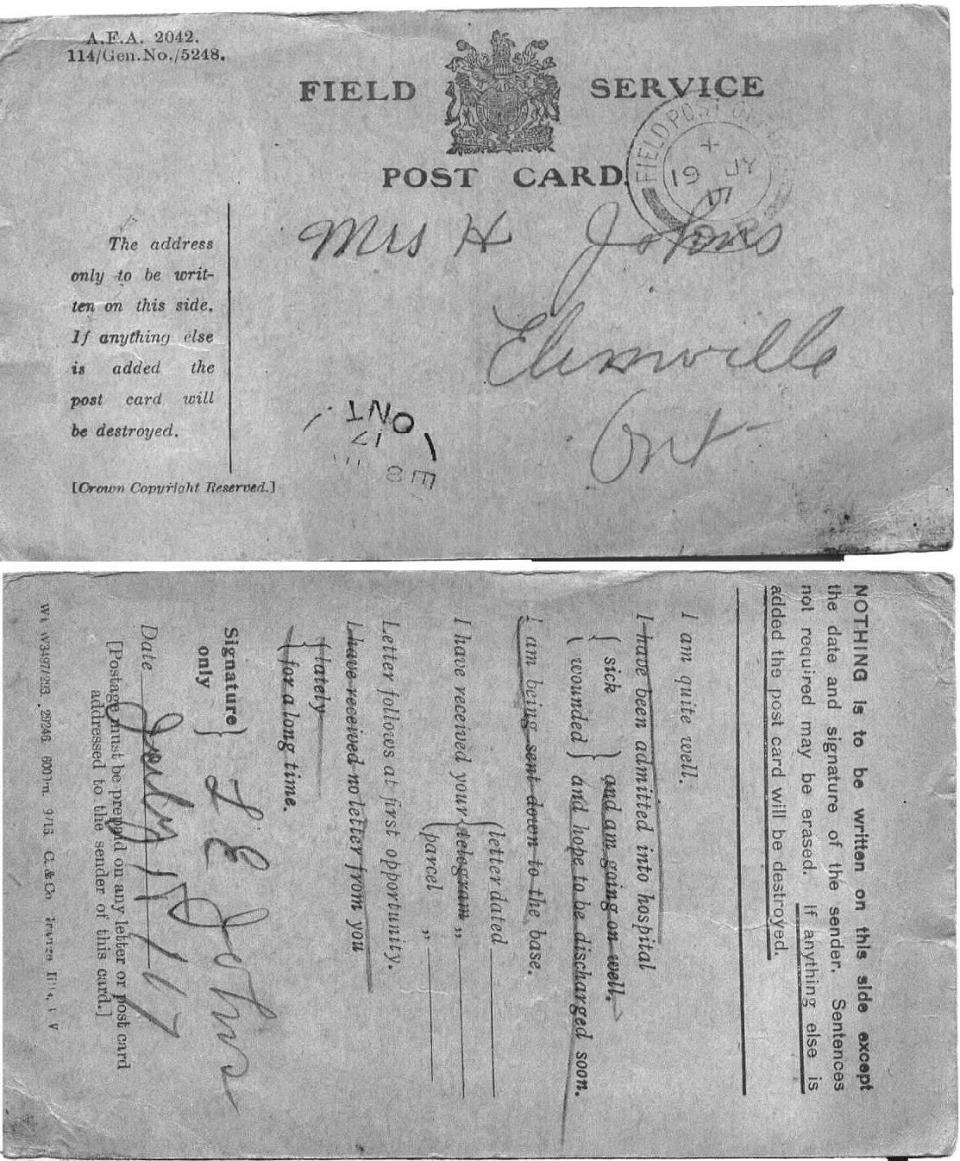 A.F.A. 2042.
114/Gen.No./5248.
FIELD SERVICE
POST CARD.
FIELD POST OFFICE
19 JY
17
The address
only to be writ-
ten on this side.
If anything else
is added the
post card will
be destroyed.
[Crown Copyright Reserved.]
Mrs H Johns
Elimville
Ont
ONT
17
NOTHING is to be written on this side except
the date and signature of the sender. Sentences
not required may be erased. If anything else is
added the post card will be destroyed.
I am quite well.
I have been admitted into hospital
{ sick } and am going on well.
{ wounded } and hope to be discharged soon.
I am being sent down to the base.
I have received your { letter dated
telegram „
parcel „
Letter follows at first opportunity.
I have received no letter from you
{ lately
{ for a long time.
Signature
only } L E Johns
Date July 17/17
[Postage must be prepaid on any letter or post card
addressed to the sender of this card.]
29246. 6000m. 9/16. C. & Co.